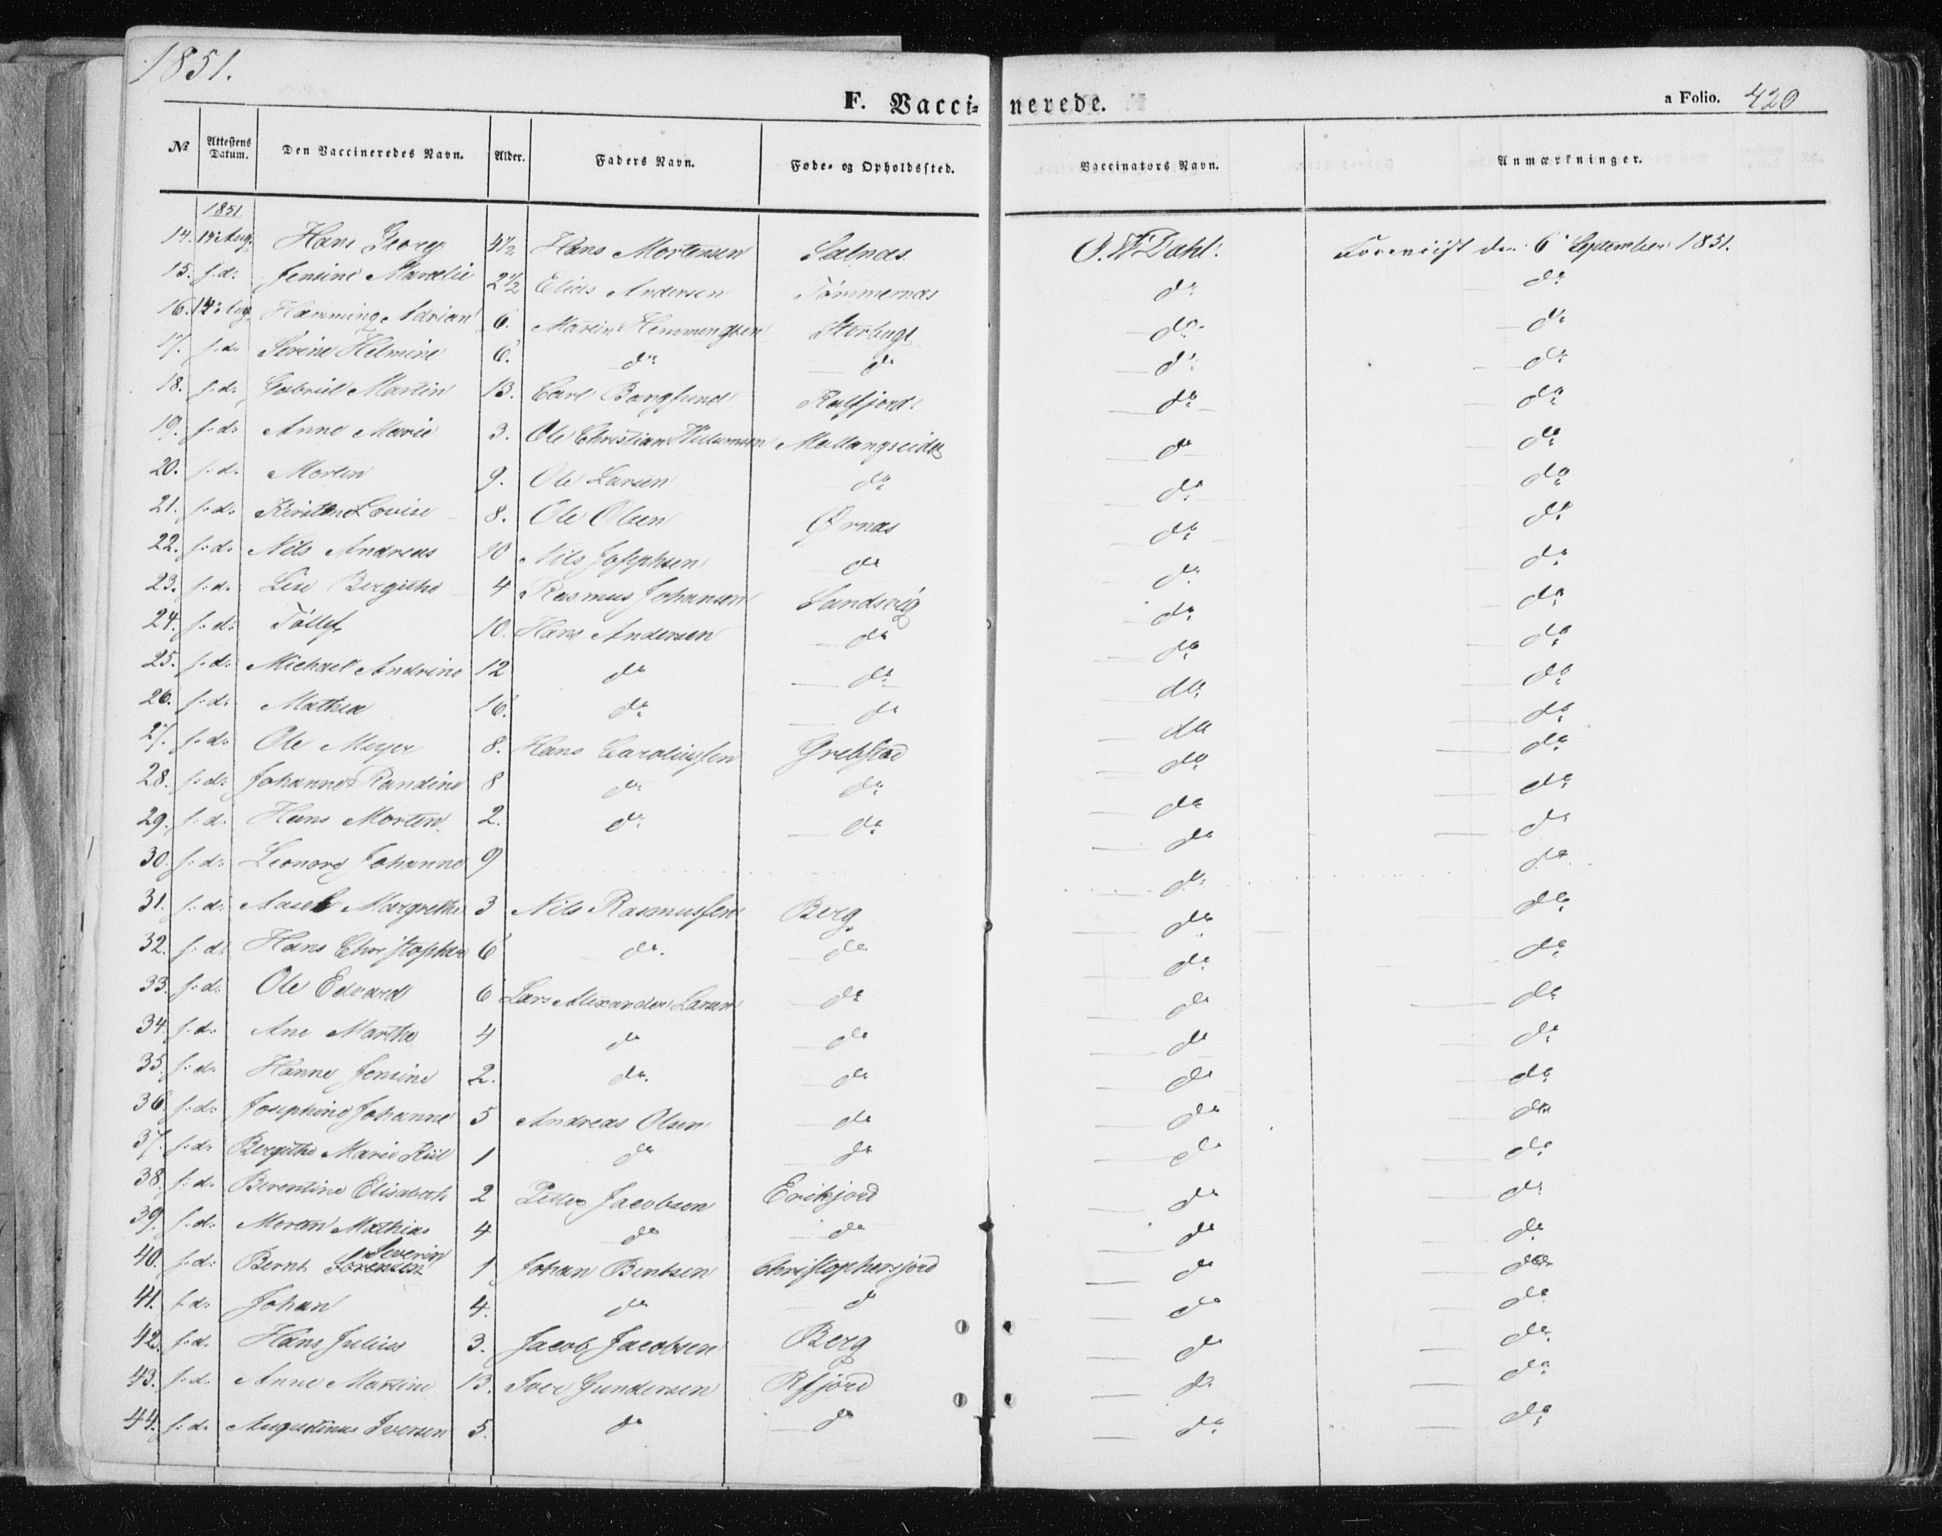 1851.
F. Vaccinerede.
a Folio. 420
No | Attestens Datum. | Den Vaccineredes Navn. | Alder. | Faders Navn. | Føde- og Opholdssted. | Vaccinators Navn. | Anmærkninger.
1851
14. | 14 Aug. | Hans Georg | 4 1/2 | Hans Mortensen | Salnæs. | O. W. Dahl. | Foreviist den 6 September 1851.
15. | s. d. | Jensine Marselie | 2 1/2 | Elias Andersen | Tømmernæs | do | do
16. | 14 Aug | Hemming Adrian | 6. | Martin Hemmingsen | Storbugt | do | do
17. | s. d. | Serine Helmine | 6. | do | do | do | do
18. | s. d. | Gabriel Martin | 13. | Carl Berglund | Kalfjord. | do | do
19. | s. d. | Anne Marie | 3. | Ole Christian Willumsen | Mallangseidet | do | do
20. | s. d. | Morten | 9. | Ole Larsen | do | do | do
21. | s. d. | Kirsten Lovise | 8. | Ole Olsen | Ørnæs | do | do
22. | s. d. | Nils Andreas | 10 | Nils Josephsen | do | do | do
23. | s. d. | Lise Bergithe | 4 | Rasmus Johansen | Sandsvåg | do | do
24. | s. d. | Tøllef | 10. | Hans Andersen | do | do | do
25. | s. d. | Michael Andrine | 12 | do | do | do | do
26. | s. d. | Mathea | 16. | do | do | do | do
27. | s. d. | Ole Meyer | 8. | Hans Caroliussen | Grebstad | do | do
28. | s. d. | Johanne Randine | 8 | do | do | do | do
29. | s. d. | Hans Morten | 2. | do | do | do | do
30. | s. d. | Leonore Johanne | 9 | do | do
31. | s. d. | Margrethe | 3 | Nils Rasmussen | Berg | do | do
32. | s. d. | Hans Christopher | 6 | do. | do | do | do
33. | s. d. | Ole Edvard | 6 | Lars Alexander Larsen | do | do | do
34. | s. d. | Ane Marthe | 4 | do | do | do | do
35. | s. d. | Hanne Jensine | 2. | do. | do | do | do
36. | s. d. | Josephine Johanne | 5 | Andreas Olsen | do | do | do
37. | s. d. | Bergithe Marie Kiil | 1 | do | do | do | do
38. | s. d. | Berentine Elisabeth | 2 | Petter Jacobsen | Erikjord | do | do
39. | s. d. | Morten Mathias | 4 | do | do | do | do
40. | s. d. | Bernt Sørensen Severin | 1 | Johan Bentsen | Christophersjord | do | do
41. | s. d. | Johan | 4. | do | d | do | do
42. | s. d. | Hans Julius | 3. | Jacob Jacobsen | Berg | do | do
43. | s. d. | Anne Martine | 13. | Iver Gundersen | Rfjord | do | do
44. | s. d. | Augustinus Iversen | 5. | do | do | do | do